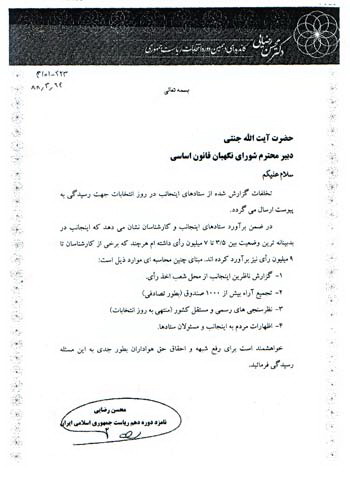 دکتر محسن رضایی
کاندیدای دهمین دوره انتخابات ریاست جمهوری
بسمه تعالی
حضرت آیت الله جنتی
دبیر محترم شورای نگهبان قانون اساسی
سلام علیکم
تخلفات گزارش شده از ستادهای اینجانب در روز انتخابات جهت رسیدگی به
پیوست ارسال می گردد.
در ضمن برآورد ستادهای اینجانب و کارشناسان نشان می دهد که اینجانب در
بدبینانه ترین وضعیت بین ۳/۵ تا ۷ میلیون رأی داشته ام هرچند که برخی از کارشناسان تا
۹ میلیون رأی نیز برآورد کرده اند. مبنای چنین محاسبه ای موارد ذیل است:
۱- گزارش ناظرین اینجانب از محل شعب اخذ رأی.
۲- تجمیع آراء بیش از ۱۰۰۰ صندوق (بطور تصادفی)
۳- نظرسنجی های رسمی و مستقل کشور (منتهی به روز انتخابات)
۴- اظهارات مردم به اینجانب و مسئولان ستادها.
خواهشمند است برای رفع شبهه و احقاق حق هواداران بطور جدی به این مسئله
رسیدگی فرمائید.
محسن رضایی
نامزد دوره دهم ریاست جمهوری اسلامی ایران